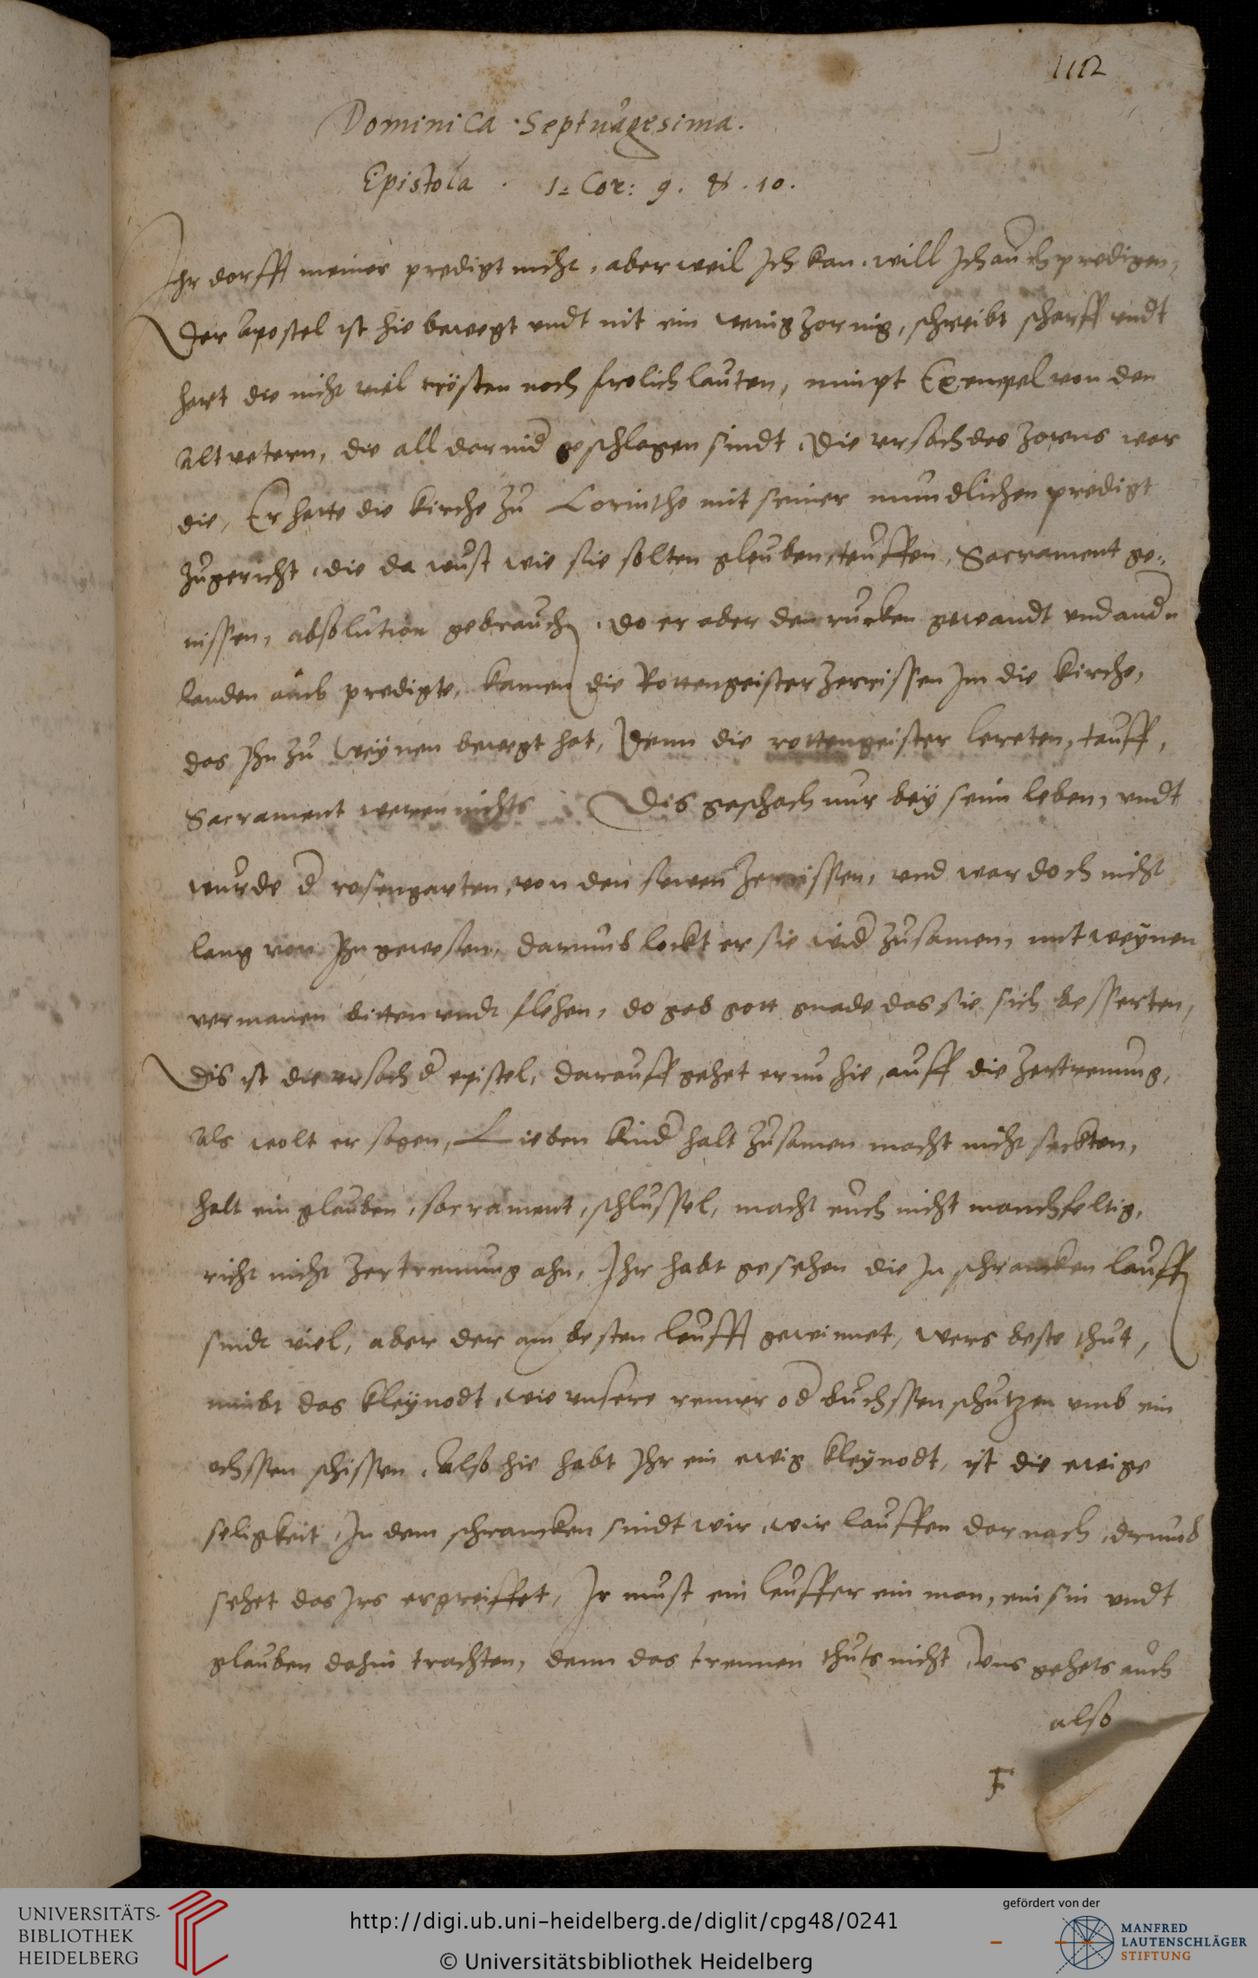 112
Dominica Septuagesima.
Epistola . 1. Cor: 9. & .10.
Ihr dorfft meiner predigt nicht, aber weil Ich kan, will Ich auch predigen,
Der Apostel ist hie bewegt undt mit ein wenig zornig, schreibt scharff undt
hart die nicht viel trösten noch frolich lauten, nimpt Exempel von den
Altvetern, die all darnid geschlagen sindt, Die ursach des zorns war
die, Er hatte die kirche zu Corintho mit seiner mundlichen predigt
zugericht, die da wust wie sie solten gleuben, teuffen, Sacrament ge-
nissen, absolution gebrauchen, do er aber den rucken gewandt und andn
landen auch predigte, kamen die Rottengeister zerrissen Im die kirche,
das Ihn zu weynen bewegt hat, Denn die rottengeister lereten, tauff,
Sacrament weren nichts Dis geschach nur bey seim leben, undt
wurde d rosengarten, von den sewen zerrissen, und war doch nicht
lang von Ihn gewesen, darumb lockt er sie wid zusamen, mit weynen
vermanen bitten undt flehen, do gab gott gnade das sie sich besserten,
Dis ist die ursach d epistel, darauff gehet er nu hie, auff die zertrennung,
Als wolt er sagen, Lieben kind halt zusamen macht nicht seckten,
halt ein glauben, sacrament, schlussel, macht euch nicht manchfeltig,
richt nicht zertrennung ahn, Ihr habt gesehen die In schrancken lauffen
sindt viel, aber der am besten leufft gewinnet, wers beste thut,
nimbt das kleynodt, wie unsere renner od buchssen schutzen umb ein
ochssen schissen, Also hie habt Ihr ein ewig kleynodt, ist die ewige
seligkeit, In dem schrancken sindt wir, wir lauffen dar nach, drumb
sehet das Irs ergreiffet, Ir must ein leuffer ein man, ein sin undt
glauben dahin trachten, denn das trennen thuts nicht, Uns gehets auch
also
F
UNIVERSITÄTS-
BIBLIOTHEK
HEIDELBERG
http://digi.ub.uni-heidelberg.de/diglit/cpg48/0241
© Universitätsbibliothek Heidelberg
gefördert von der
MANFRED
LAUTENSCHLÄGER
STIFTUNG